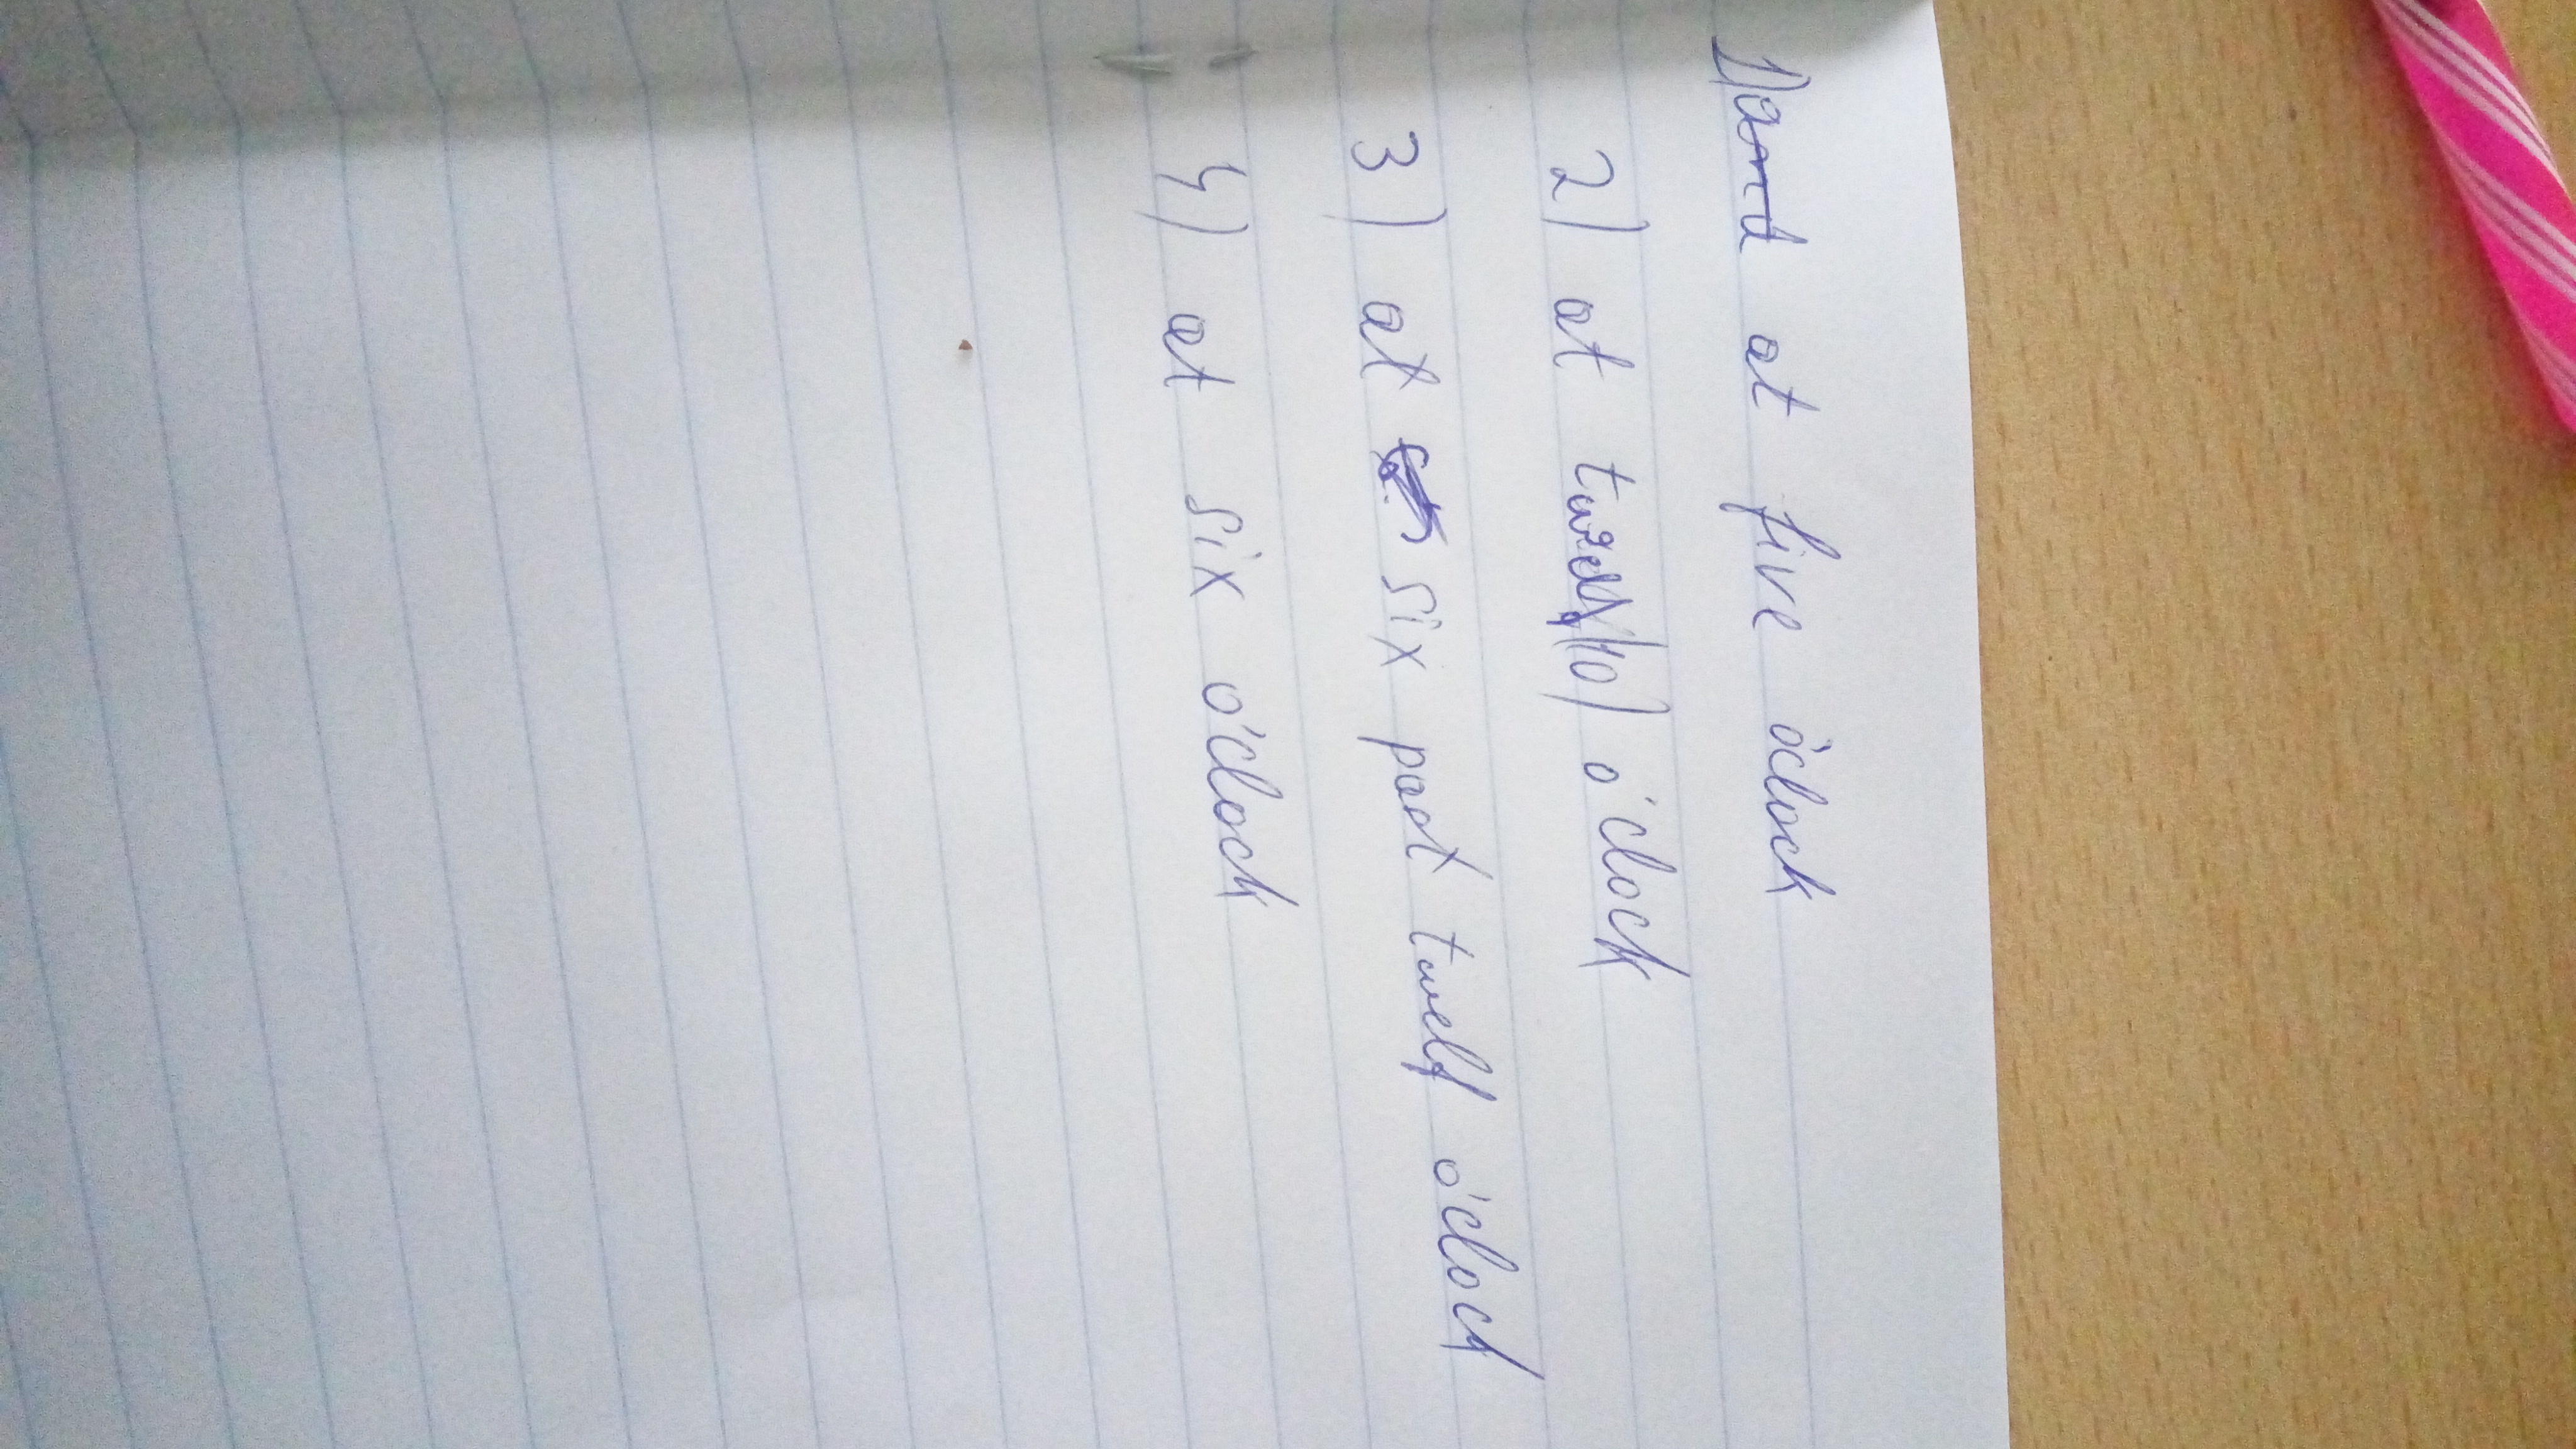 1) at five o'clock
2) at twelf (10) o'clock
3) at six past twelf o'clock
4) at six o'clock